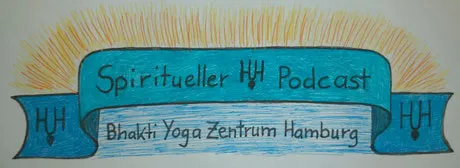 Spiritueller Podcast
Bhakti Yoga Zentrum Hamburg